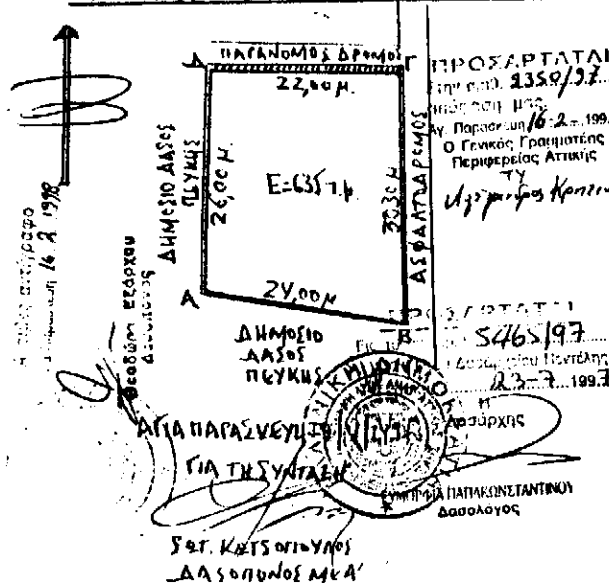 ΠΑΡΑΝΟΜΟΣ ΔΡΟΜΟΣ
Δ
Γ
22,00 Μ.
ΔΗΜΟΣΙΟ ΔΑΣΟΣ
ΠΕΥΚΗΣ
26,00 Μ.
Ε=635 τ.μ.
30,30 Μ.
ΑΣΦΑΛΤΟΔΡΟΜΟΣ
Α
24,00 Μ
Β
ΔΗΜΟΣΙΟ
ΔΑΣΟΣ
ΠΕΥΚΗΣ
ΠΡΟΣΑΡΤΑΤΑΙ
2350/97
Αγ. Παρασκευη 16-2-199
Ο Γενικός Γραμματέας
Περιφερείας Αττικής
ΤΥ
5465/97
Δασαρχείου Πεντέλης
23-7-1997
Η
Δασάρχης
ΠΑΠΑΚΩΝΣΤΑΝΤΙΝΟΥ
Δασολόγος
αντίγραφο
16.2.1998
ΑΓΙΑ ΠΑΡΑΣΚΕΥΗ
ΓΙΑ ΤΗ ΣΥΝΤΑΞΗ
ΣΩΤ. ΚΑΤΣΟΠΟΥΛΟΣ
ΔΑΣΟΠΟΝΟΣ ΜΕ Α'